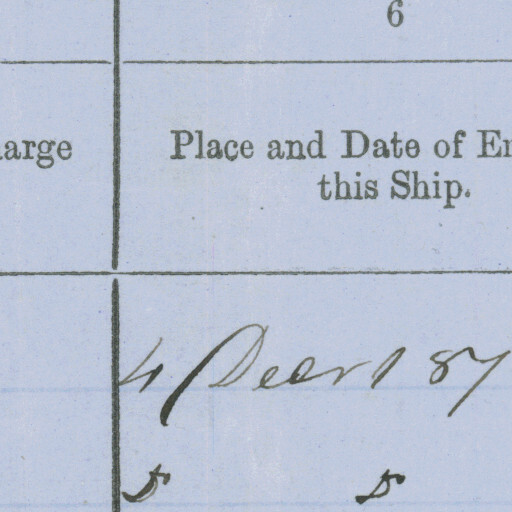 6
arge
Place and Date of En
this Ship.
4 Decr 187
Do Do